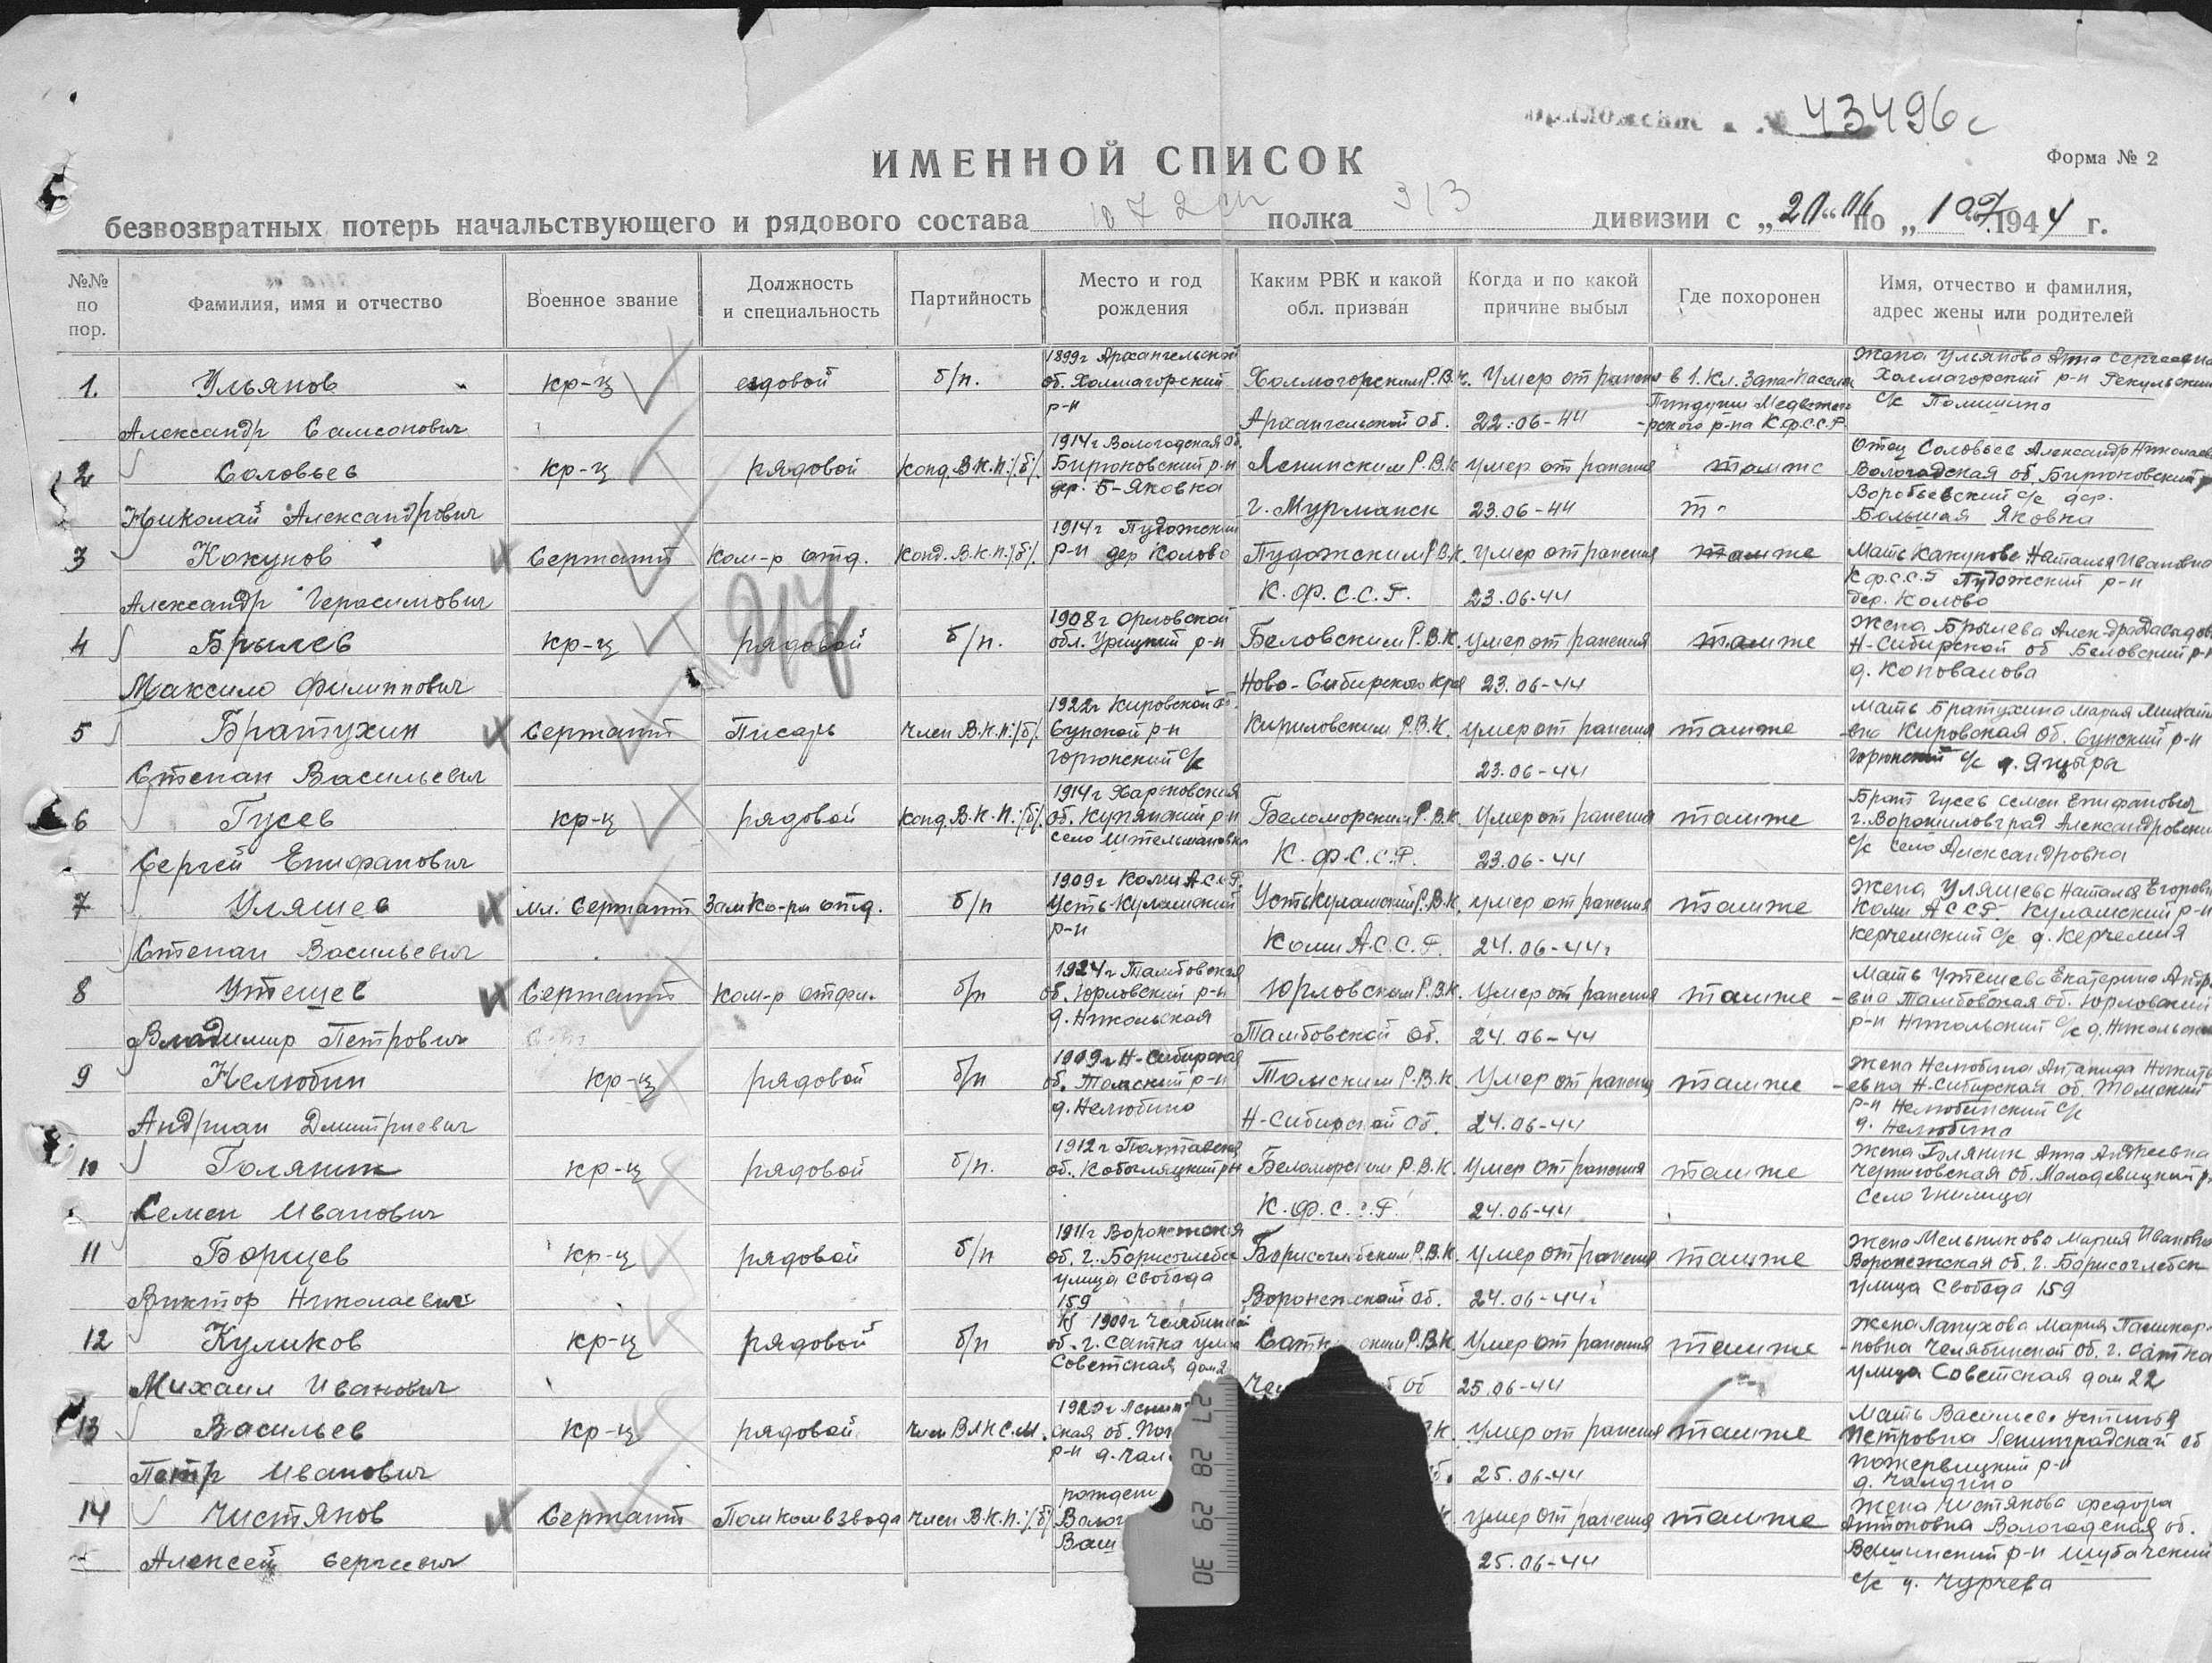 43496с
ИМЕННОЙ СПИСОК
Форма № 2
безвозвратных потерь начальствующего и рядового состава 1072 сп полка 313 дивизии с „20“ 06 по „1“ 07. 1944 г.
№№ по пор.
Фамилия, имя и отчество
Военное звание
Должность и специальность
Партийность
Место и год рождения
Каким РВК и какой обл. призван
Когда и по какой причине выбыл
Где похоронен
Имя, отчество и фамилия, адрес жены или родителей
1. Ульянов Александр Самсонович
кр-ц
ездовой
б/п.
1899г Архангельской об. Холмагорский р-н
Холмогорским Р.В.К. Архангельской об.
Умер от ранения 22.06-44
в 1. кл. Пиндуши Медвежегорского р-на К.ф.С.С.Р.
Жена Ульянова Анна Сергеевна Холмагорский р-н с/с
2 Соловьев Николай Александрович
кр-ц
рядовой
Канд. В.К.П./б/.
1914г Вологодская об. Бирюковский р-н дер. Б-Яковка
Ленинским Р.В.К г. Мурманск
умер от ранения 23.06-44
тамже
Отец Соловьев Александр Николаев Вологодская об. Бирюковский р Воробьевский с/с дер. Большая Яковка
3 Кокунов Александр Герасимович
Сержант
Ком-р отд.
Канд. В.К.П./б/.
1914г Пудожский р-н дер Колово
Пудожским Р.В.К. К.ф.С.С.Р.
Умер от ранения 23.06-44
тамже
Мать Какунова Наталья Ивановна К.ф.С.С.Р Пудожский р-н дер. Колово
4 Брылев Максим Филиппович
кр-ц
рядовой
б/п.
1908г Орловской обл. Урицкий р-н
Беловским Р.В.К. Ново-Сибирского края
умер от ранения 23.06-44
тамже
Жена Брылева Н-Сибирской об Беловский р-н д. Коновалова
5 Братухин Степан Васильевич
Сержант
Писарь
Член В.К.П./б/.
1922г Кировской об. Сунской р-н с/с
Кириловским Р.В.К.
умер от ранения 23.06-44
тамже
Мать Братухина Мария Михайлвна Кировская об. Сунский р-н с/с
6 Гусев Сергей Епифанович
кр-ц
рядовой
Канд. В.К.П./б/.
1914г Харьковская об. Купянский р-н село
Беломорским Р.В.К К.ф.С.С.Р.
Умер от ранения 23.06-44
тамже
Брат Гусев Семен Епифанович г. Ворошиловград Александровский с/с село Александровка
7 Уляшев Степан Васильевич
Мл. Сержант
Зам ко-ра отд.
б/п
1909г Коми АССР. Усть Куломский р-н
Усть Куломский Р.В.К. Коми А.С.С.Р.
умер от ранения 24.06-44г
тамже
Жена Уляшева Наталья Егоровн Коми АССР. Куломский р-н Керчемский с/с д. Керчемия
8 Утешев Владимир Петрович
Сержант
Ком-р отдел.
б/п
1924г Тамбовская об. Юрловский р-н д. Никольская
Юрловским Р.В.К. Тамбовской об.
Умер от ранения 24.06-44
тамже
Мать Утешева Екатерина Андревна Тамбовская об. Юрловский р-н Никольский с/с д. Никольская
9 Нелюбин Андриан Дмитриевич
кр-ц
рядовой
б/п
1909г Н-Сибирская об. Томский р-н д. Нелюбино
Томским Р.В.К Н-Сибирской об.
Умер от ранения 24.06-44
тамже
Жена Нелюбина Н-Сибирская об. Томский р-н Нелюбинский с/с д. Нелюбино
10 Голяник Семен Иванович
кр-ц
рядовой
б/п.
1912г Полтавская об. р-н
Беломорским Р.В.К. К.ф.С.С.Р.
Умер от ранения 24.06-44
тамже
Жена Голяник Анна Черниговская об. р-н Село Гнилица
11 Борщев Виктор Николаевич
кр-ц
рядовой
б/п
1911г Воронежская об. г. Борисоглебск улица Свобода 159
Борисоглебским Р.В.К. Воронежской об.
Умер от ранения 24.06-44г
тамже
Жена Мельникова Мария Ивановна Воронежская об. г. Борисоглебск улица Свобода 159
12 Куликов Михаил Иванович
кр-ц
рядовой
б/п
Челябинской об. г. Сатка улица Советская дом 2
Сатк ским Р.В.К. об
Умер от ранения 25.06-44
тамже
Жена Лапухова Мария Челябинской об. г. Сатка улица Советская дом 22
13 Васильев Петр Иванович
кр-ц
рядовой
Член ВЛКСМ.
ская об. р-н д.
Умер от ранения 25.06-44
тамже
Мать Васильева Петровна Ленинградской об р-н
14 Чистяков Алексей Сергеевич
Сержант
Помкомвзвода
Член В.К.П./б/
рожден Волог Ваш
умер от ранения 25.06-44
тамже
Жена Чистякова Федора Антоновна Вологодская об. р-н Шубачский с/с
27 28 29 30